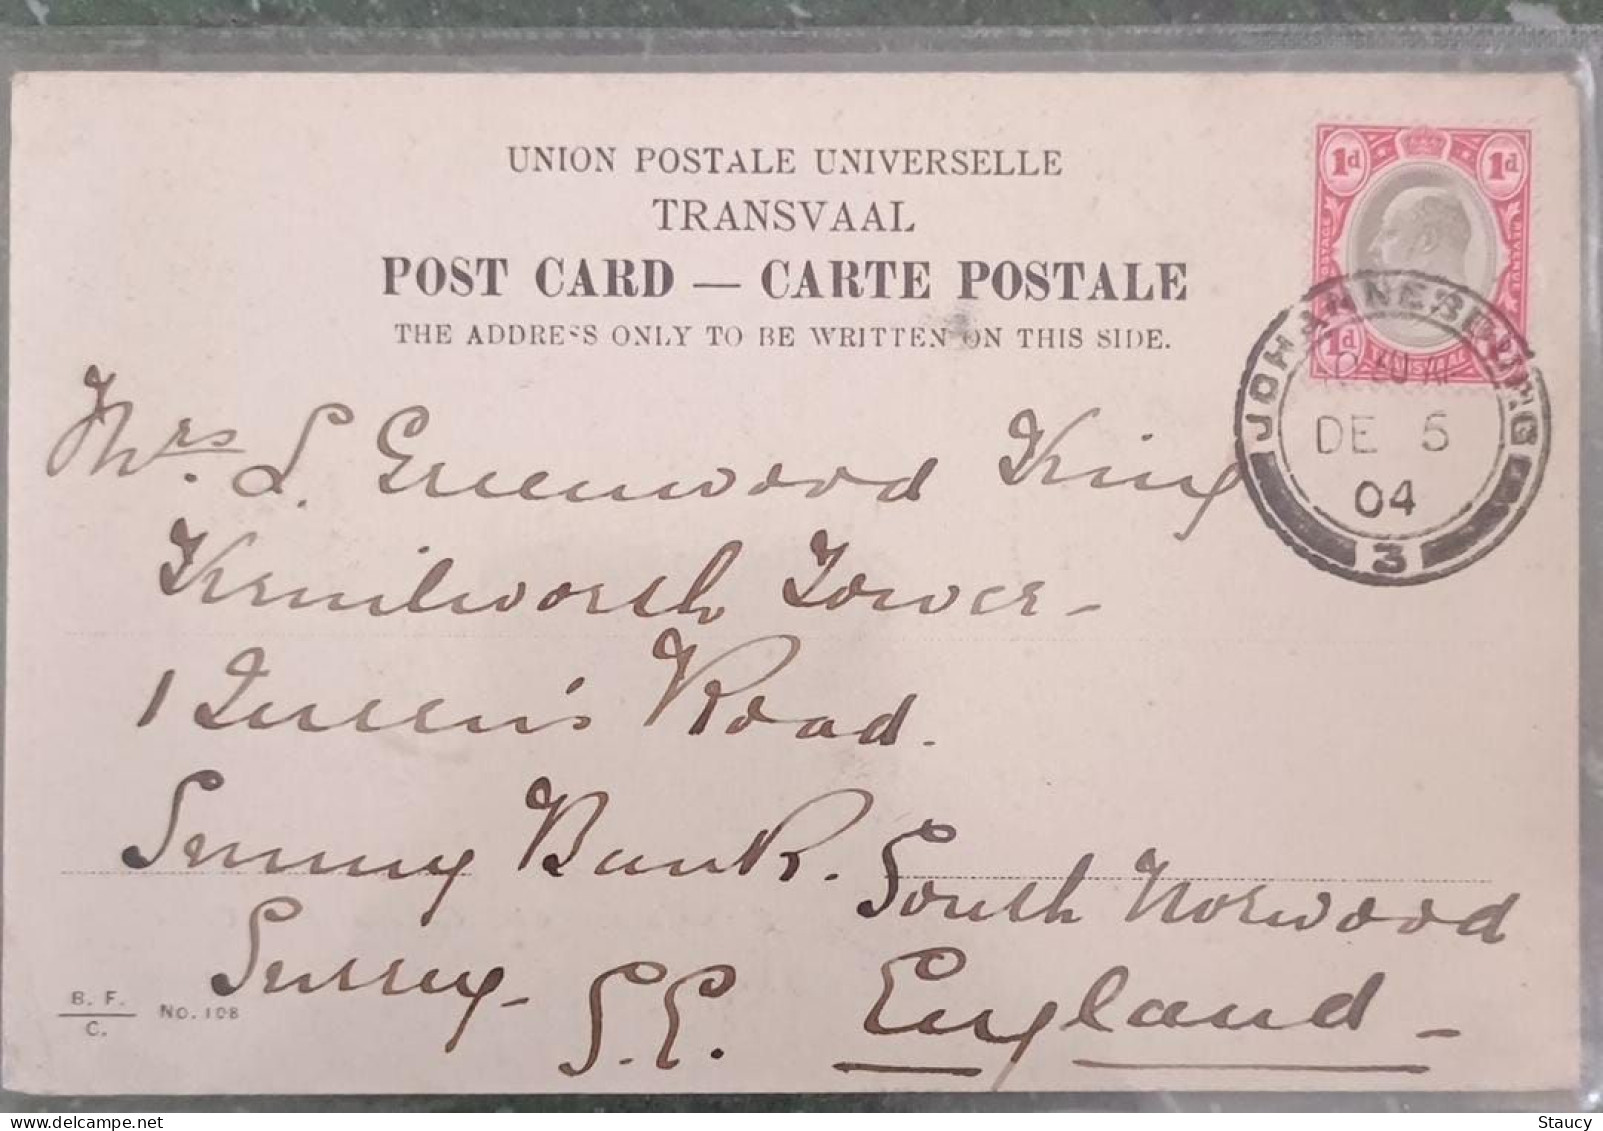 UNION POSTALE UNIVERSELLE
TRANSVAAL
POST CARD — CARTE POSTALE
THE ADDRESS ONLY TO BE WRITTEN ON THIS SIDE.
1d 1d
POSTAGE REVENUE
1d TRANSVAAL
JOHANNESBURG
DE 5
04
3
Mrs. L. Greenwood King
Kenilworth Tower -
1 Queen's Road.
Sunny Bank. South Norwood
Surrey - S.E. England -
B. F.
C.
No. 108
Staucy